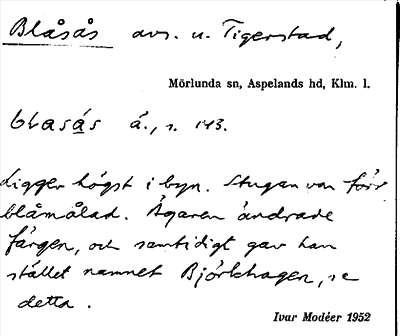 Blåsås avs. u. Tigerstad,
Mörlunda sn, Aspelands hd, Klm. l.
blasås á., s. 143.
Ligger högst i byn. Stugan var förr
blåmålad. Ägaren ändrade
färgen, och samtidigt gav han
stället namnet Björkhagen, se
detta.
Ivar Modéer 1952